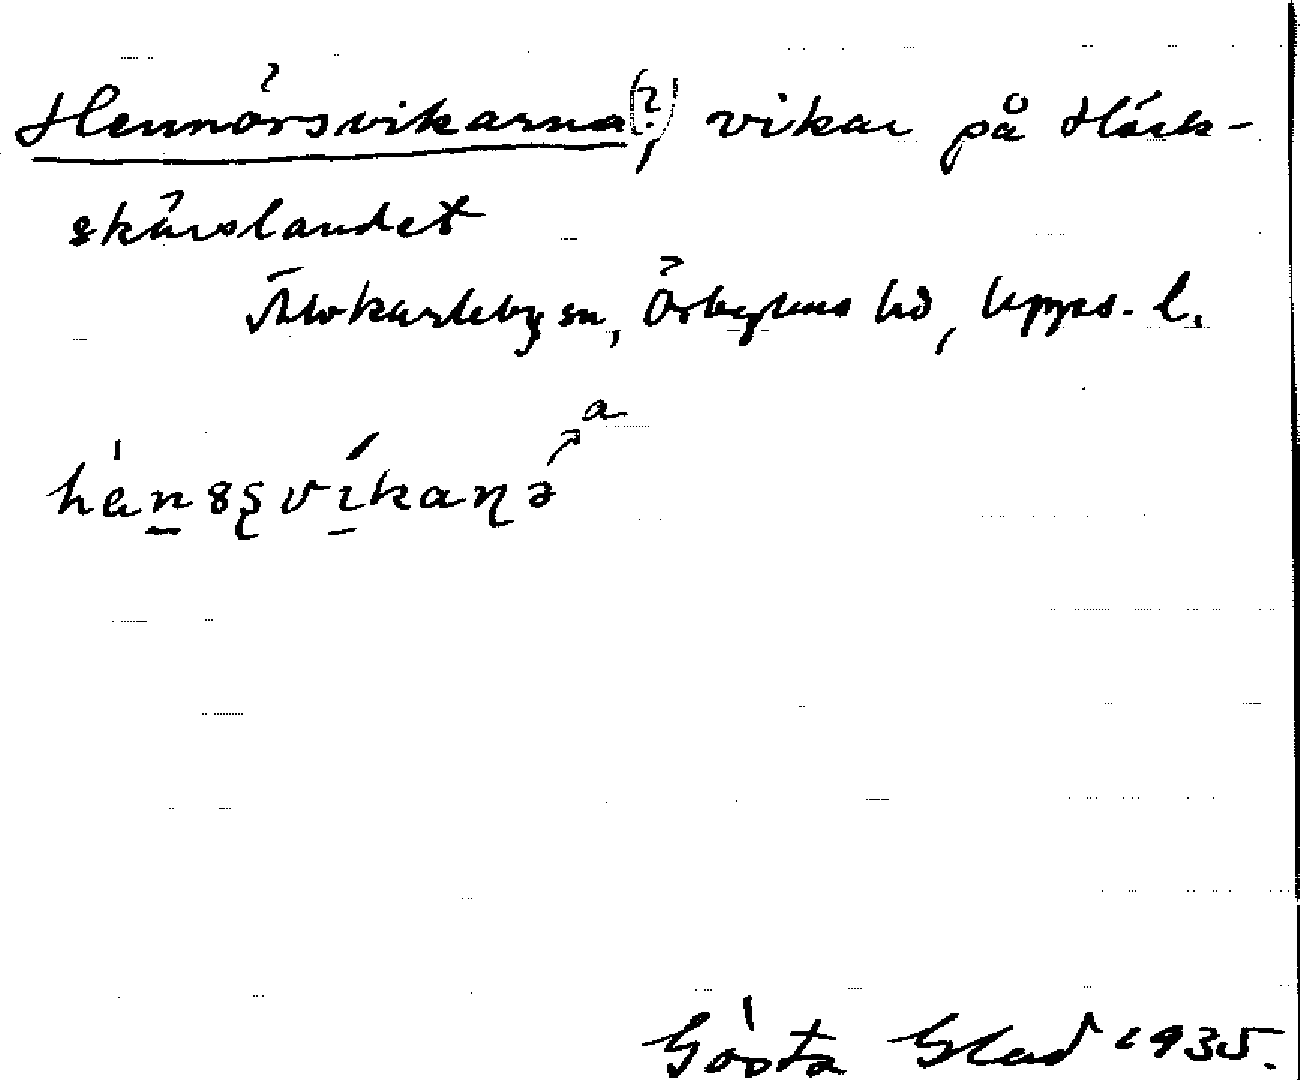 Hennörsvikarna(?), vikar på Häck-
skärslandet
Älvkarleby sn, Örbyhus hd, Upps. l.
a
Gösta Glad 1935.